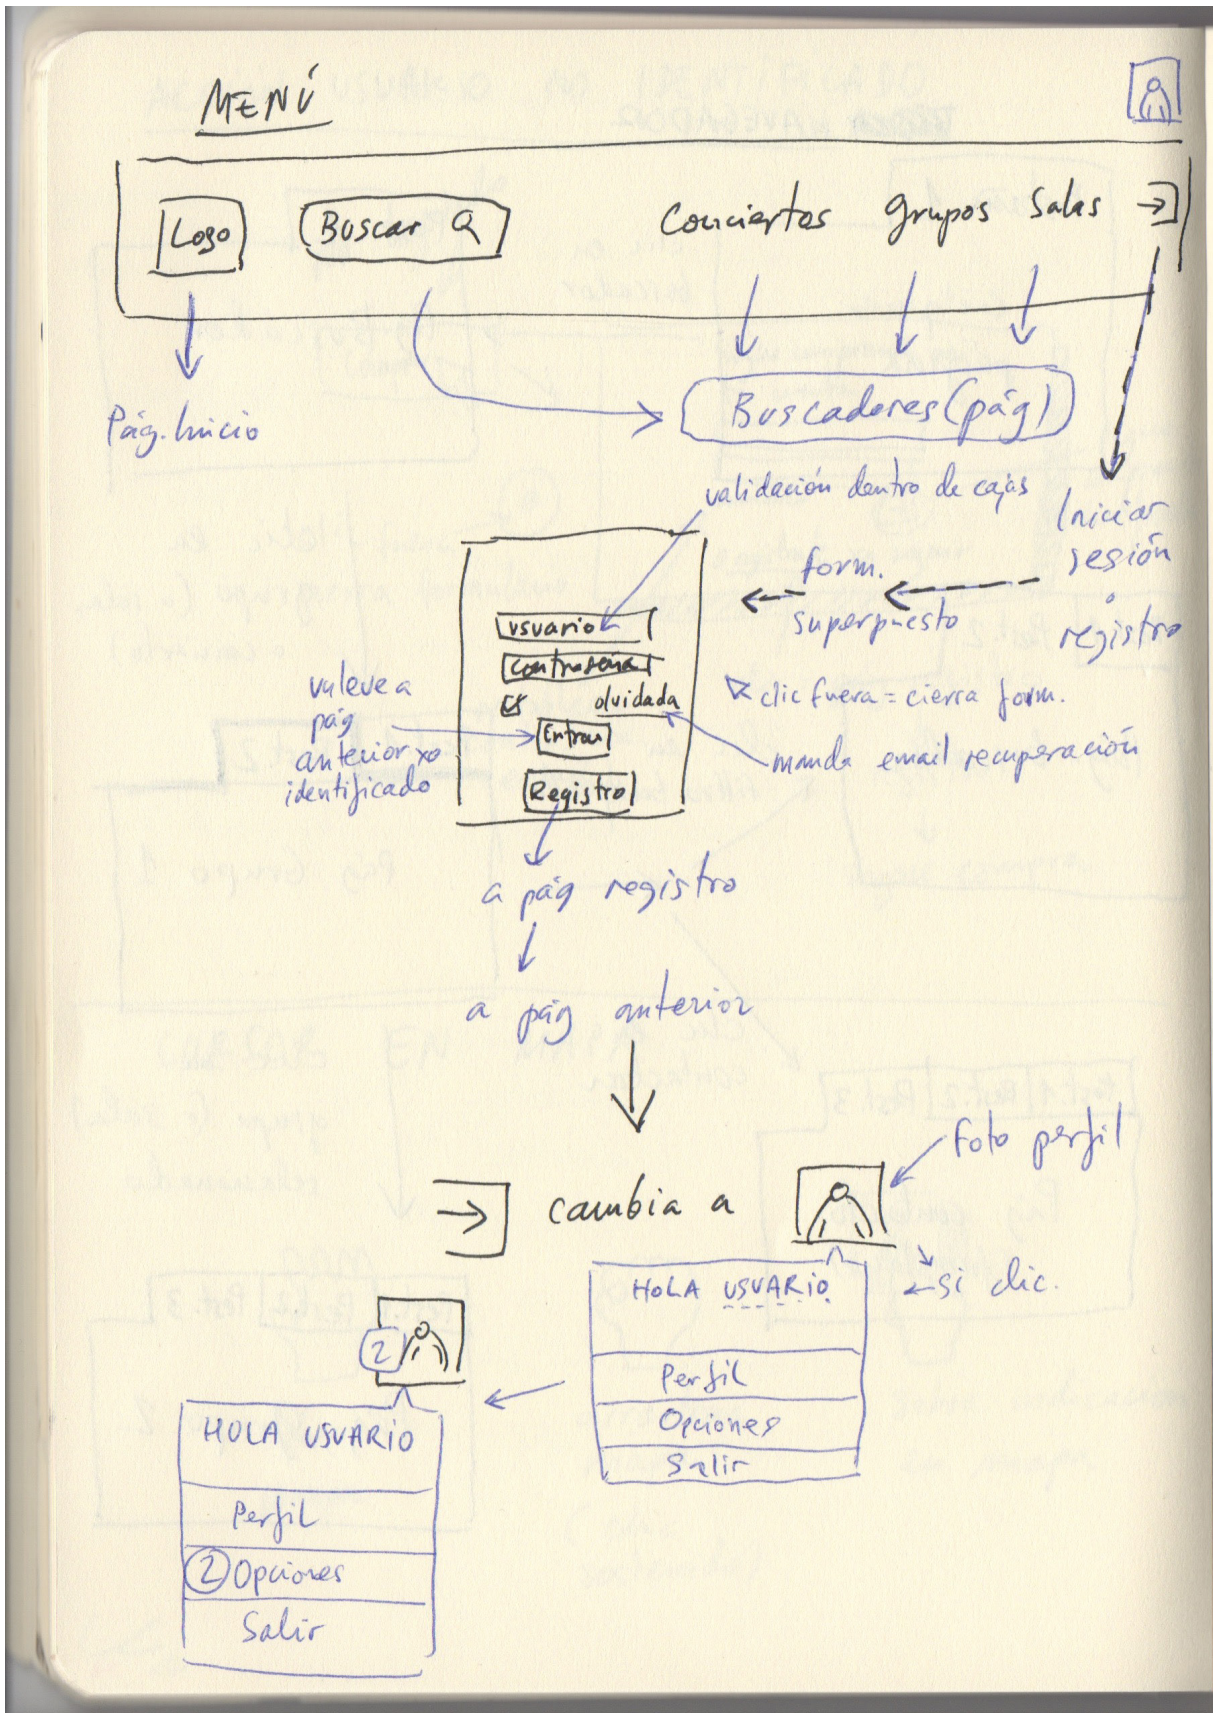 MENÚ
Logo
Buscar
Conciertos grupos Salas
Pág. Inicio
Buscadores (pág)
validación dentro de cajas
Iniciar
sesión
o
registro
form.
superpuesto
usuario
contraseña
olvidada
Entrar
Registro
vuleve a
pág
anterior xo
identificado
clic fuera = cierra form.
manda email recuperación
a pág registro
a pág anterior
foto perfil
cambia a
HOLA USUARIO
si clic.
Perfil
Opciones
Salir
2
HOLA USUARIO
Perfil
2 Opciones
Salir